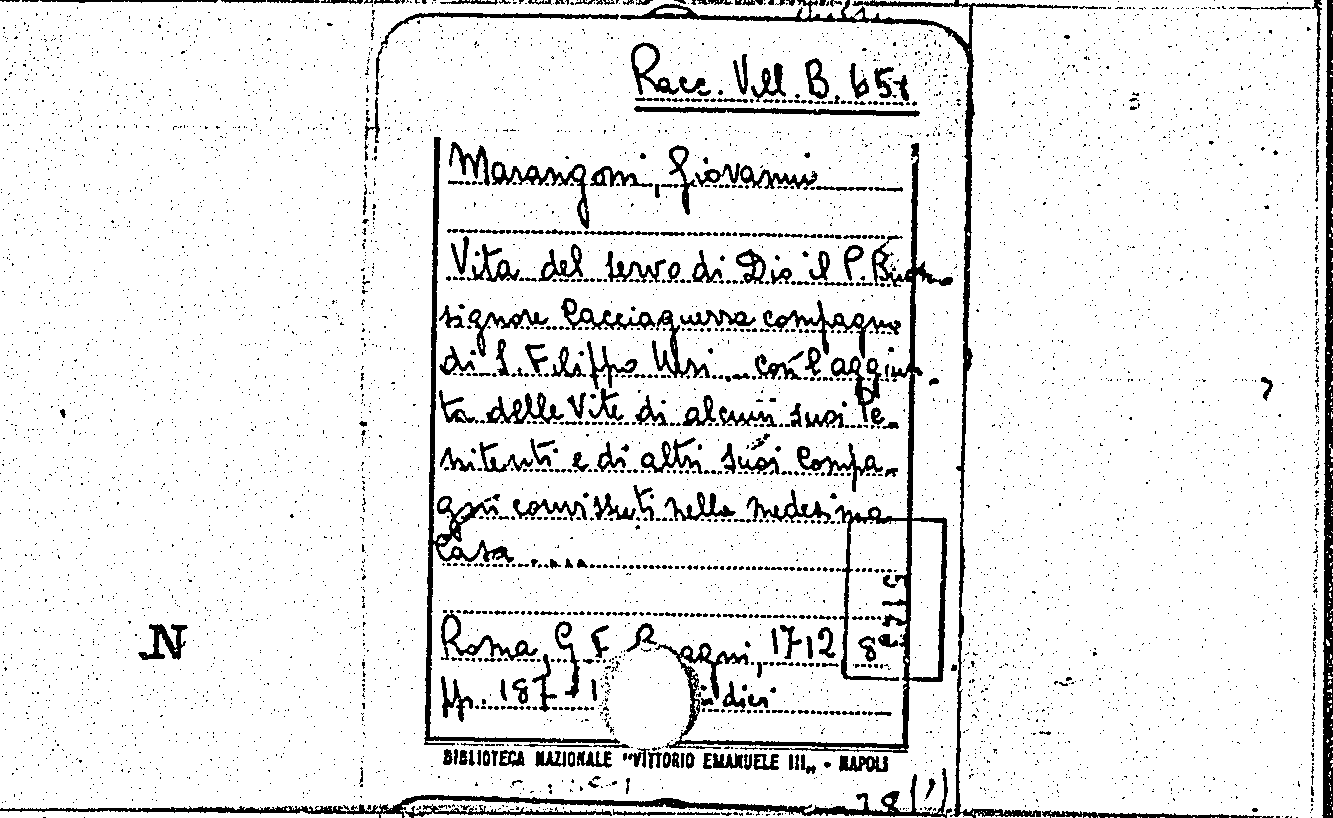 Racc. Vill. B. 657
Marangoni, Giovanni
Vita del servo di Dio il P. Buon
signore Cacciaguerra compagno
di S. Filippo Neri ... con l'aggiun
ta delle Vite di alcuni suoi Pe-
nitenti e di altri suoi Compa-
gni convissuti nella medesima
Casa ....
Roma, G. F. agni, 1712 8º
pp. 187 + 1 indici
BIBLIOTECA NAZIONALE "VITTORIO EMANUELE III„ - NAPOLI
N